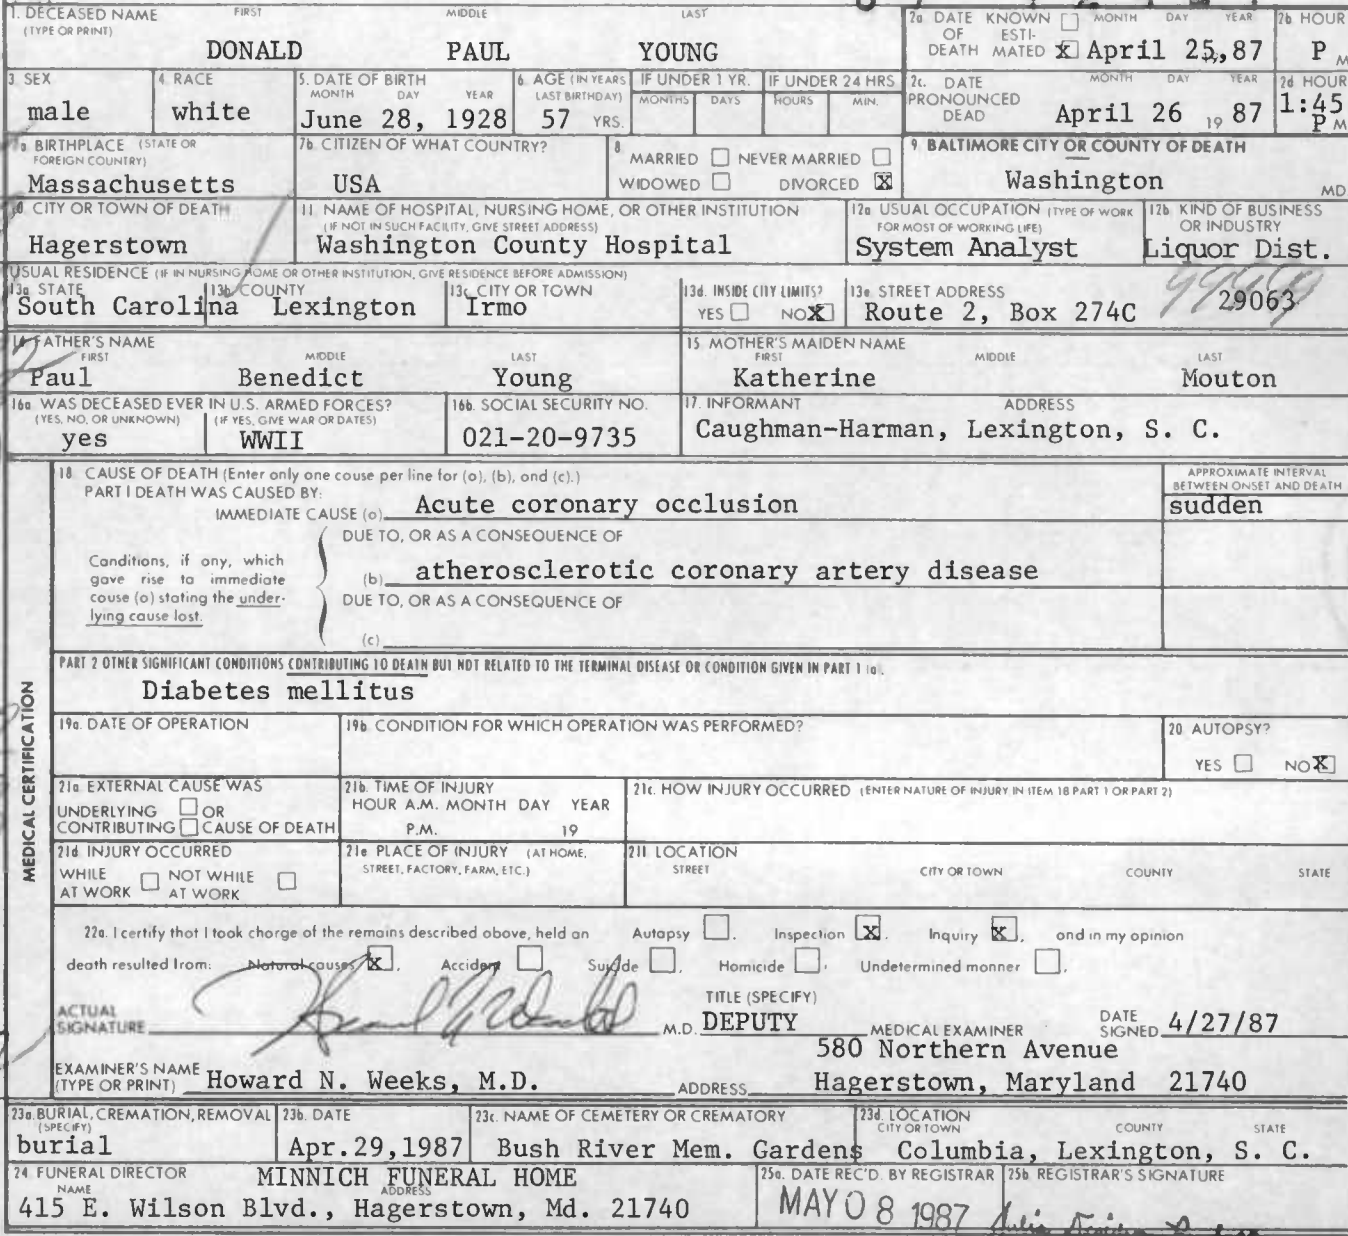 1. DECEASED NAME FIRST MIDDLE LAST
(TYPE OR PRINT)
DONALD PAUL YOUNG
2a DATE KNOWN ☐ MONTH DAY YEAR
OF ESTI-
DEATH MATED ☒ April 25, 87
2b HOUR
P M
3 SEX
male
4. RACE
white
5. DATE OF BIRTH
MONTH DAY YEAR
June 28, 1928
6. AGE (IN YEARS
LAST BIRTHDAY)
57 YRS.
IF UNDER 1 YR.
MONTHS DAYS
IF UNDER 24 HRS
HOURS MIN.
2c. DATE MONTH DAY YEAR
PRONOUNCED
DEAD April 26 19 87
2d HOUR
1:45
P M
7a BIRTHPLACE (STATE OR
FOREIGN COUNTRY)
Massachusetts
7b CITIZEN OF WHAT COUNTRY?
USA
8
MARRIED ☐ NEVER MARRIED ☐
WIDOWED ☐ DIVORCED ☒
9. BALTIMORE CITY OR COUNTY OF DEATH
Washington MD
10. CITY OR TOWN OF DEATH
Hagerstown
11. NAME OF HOSPITAL, NURSING HOME, OR OTHER INSTITUTION
(IF NOT IN SUCH FACILITY, GIVE STREET ADDRESS)
Washington County Hospital
12a USUAL OCCUPATION (TYPE OF WORK
FOR MOST OF WORKING LIFE)
System Analyst
12b KIND OF BUSINESS
OR INDUSTRY
Liquor Dist.
USUAL RESIDENCE (IF IN NURSING HOME OR OTHER INSTITUTION, GIVE RESIDENCE BEFORE ADMISSION)
13a STATE
South Carolina
13b COUNTY
Lexington
13c CITY OR TOWN
Irmo
13d. INSIDE CITY LIMITS?
YES ☐ NO ☒
13e STREET ADDRESS
Route 2, Box 274C 29063
14 FATHER'S NAME
FIRST MIDDLE LAST
Paul Benedict Young
15 MOTHER'S MAIDEN NAME
FIRST MIDDLE LAST
Katherine Mouton
16a WAS DECEASED EVER IN U.S. ARMED FORCES?
(YES, NO, OR UNKNOWN) (IF YES, GIVE WAR OR DATES)
yes WWII
16b. SOCIAL SECURITY NO.
021-20-9735
17. INFORMANT ADDRESS
Caughman-Harman, Lexington, S. C.
MEDICAL CERTIFICATION
18 CAUSE OF DEATH (Enter only one cause per line for (a), (b), and (c).)
PART I DEATH WAS CAUSED BY:
IMMEDIATE CAUSE (a) Acute coronary occlusion
APPROXIMATE INTERVAL
BETWEEN ONSET AND DEATH
sudden
DUE TO, OR AS A CONSEQUENCE OF
Conditions, if any, which
gave rise to immediate
cause (a) stating the under-
lying cause last.
(b) atherosclerotic coronary artery disease
DUE TO, OR AS A CONSEQUENCE OF
(c)
PART 2 OTHER SIGNIFICANT CONDITIONS CONTRIBUTING TO DEATH BUT NOT RELATED TO THE TERMINAL DISEASE OR CONDITION GIVEN IN PART 1 (a).
Diabetes mellitus
19a. DATE OF OPERATION
19b CONDITION FOR WHICH OPERATION WAS PERFORMED?
20 AUTOPSY?
YES ☐ NO ☒
21a EXTERNAL CAUSE WAS
UNDERLYING ☐ OR
CONTRIBUTING ☐ CAUSE OF DEATH
21b. TIME OF INJURY
HOUR A.M. MONTH DAY YEAR
P.M. 19
21c. HOW INJURY OCCURRED (ENTER NATURE OF INJURY IN ITEM 18 PART 1 OR PART 2)
21d INJURY OCCURRED
WHILE ☐ NOT WHILE ☐
AT WORK AT WORK
21e PLACE OF INJURY (AT HOME,
STREET, FACTORY, FARM, ETC.)
21f LOCATION
STREET CITY OR TOWN COUNTY STATE
22a. I certify that I took charge of the remains described above, held an Autopsy ☐, Inspection ☒, Inquiry ☒, and in my opinion
death resulted from: Natural causes ☒, Accident ☐, Suicide ☐, Homicide ☐, Undetermined manner ☐.
ACTUAL
SIGNATURE M.D.
TITLE (SPECIFY)
DEPUTY MEDICAL EXAMINER
DATE
SIGNED 4/27/87
EXAMINER'S NAME
(TYPE OR PRINT) Howard N. Weeks, M.D.
580 Northern Avenue
ADDRESS Hagerstown, Maryland 21740
23a. BURIAL, CREMATION, REMOVAL
(SPECIFY)
burial
23b. DATE
Apr.29,1987
23c. NAME OF CEMETERY OR CREMATORY
Bush River Mem. Gardens
23d. LOCATION
CITY OR TOWN COUNTY STATE
Columbia, Lexington, S. C.
24 FUNERAL DIRECTOR
NAME ADDRESS
MINNICH FUNERAL HOME
415 E. Wilson Blvd., Hagerstown, Md. 21740
25a. DATE REC'D. BY REGISTRAR
MAY 08 1987
25b REGISTRAR'S SIGNATURE